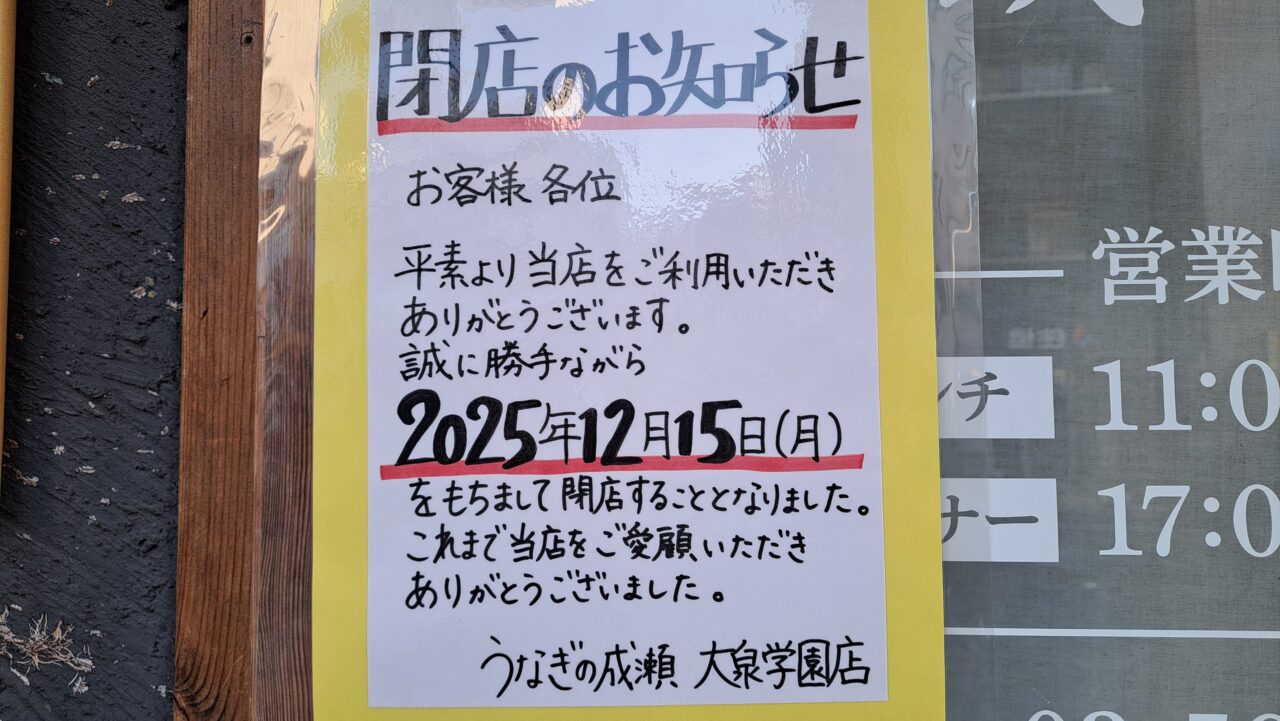 閉店のお知らせ
お客様 各位
平素より当店をご利用いただき
ありがとうございます。
誠に勝手ながら
2025年12月15日(月)
をもちまして閉店することとなりました。
これまで当店をご愛顧いただき
ありがとうございました。
うなぎの成瀬 大泉学園店
営業
ンチ 11:0
ナー 17:0